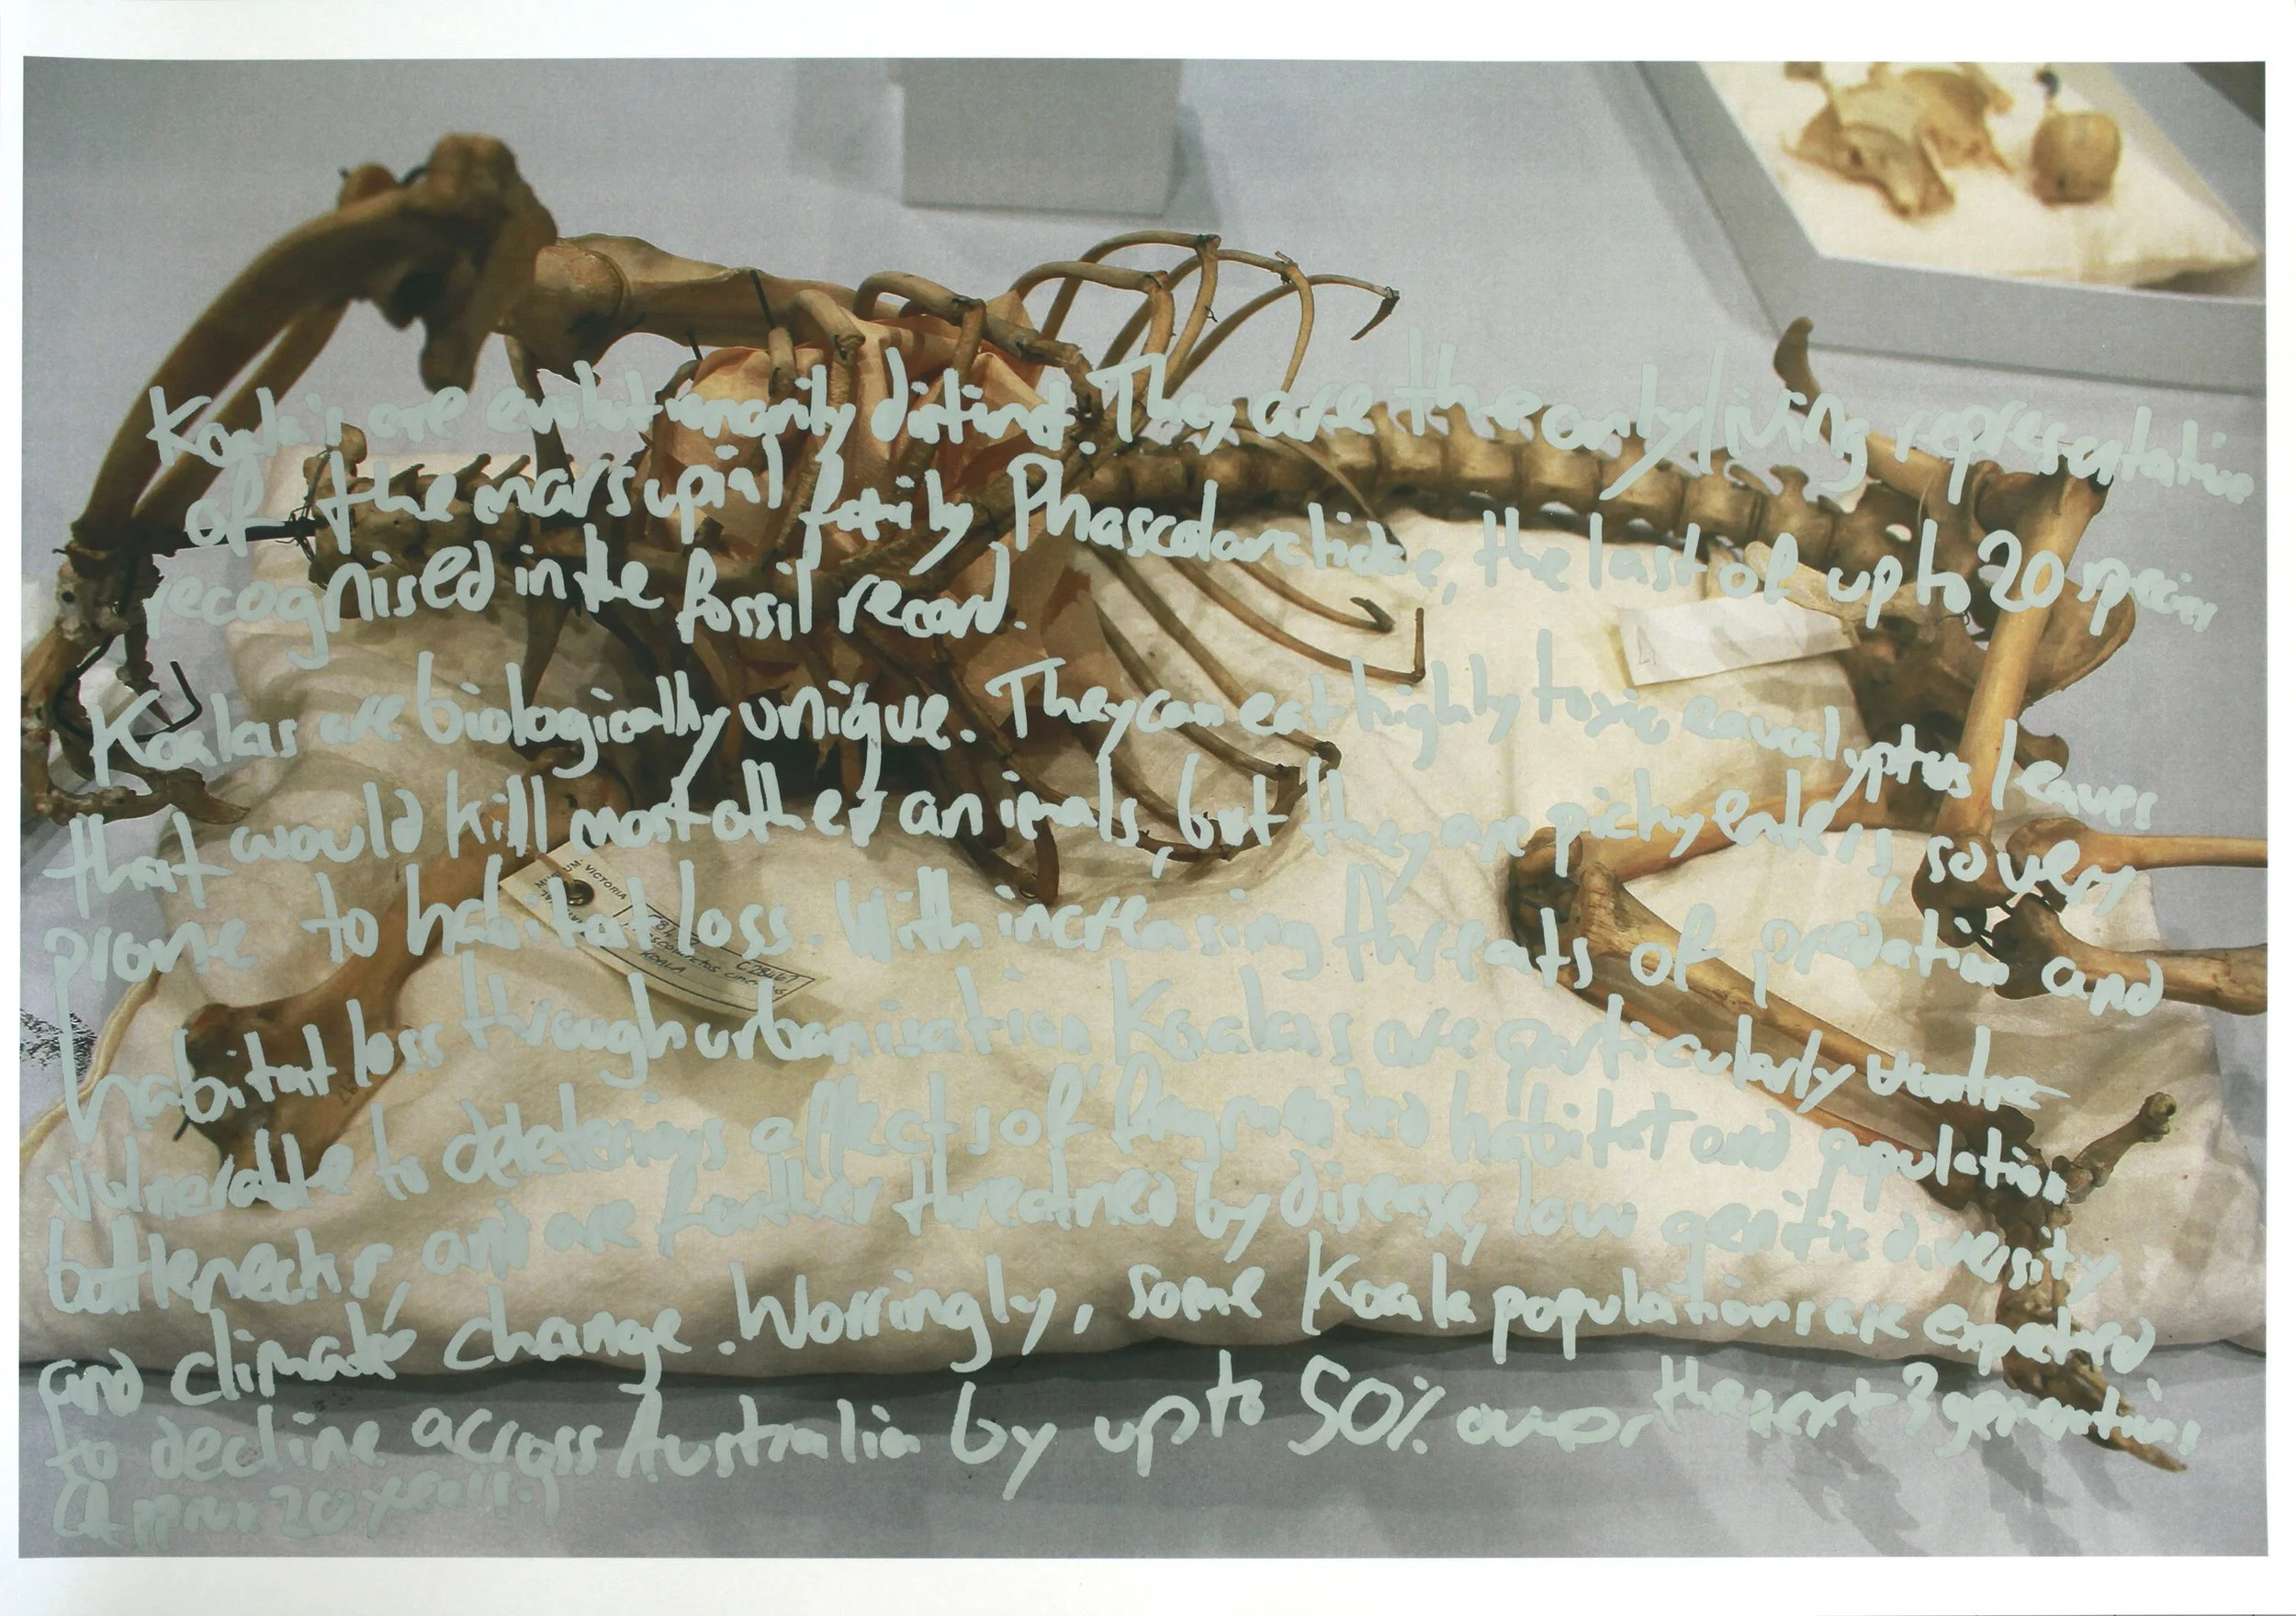 Koala's are evolutionarily distinct. They are the only living representative
of the marsupial family Phascolarctidae, the last of up to 20 species
recognised in the fossil record.
Koalas are biologically unique. They can eat highly toxic eaucalyptus leaves
that would kill most other animals, but they are picky eaters, so very
prone to habitat loss. With increasing threats of predation and
habitat loss through urbanisation Koalas are particularly
vulnerable to deleterious affects of fragmented habitat and population
bottlenecks, and are further threatned by disease, low genetic diversity
and climate change. Worringly, some Koala populations are expected
to decline across Australia by up to 50% over the next 3 generations
(Approx 20 years.)
4
MUSEUM VICTORIA
C28467
KOALA